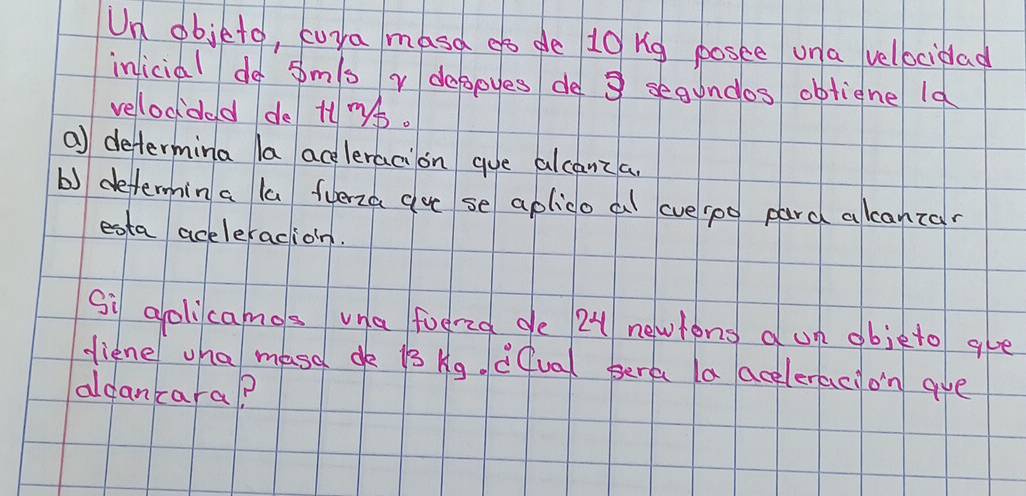 Un objeto, cuya masa es de 10 Kg posee una velocidad
inicial de 5m/s y despues de 3 segundos obtiene la
velocidad de 11 m/s.
a) determina la aceleración que alcanza.
b) determina la fuerza que se aplico al cuerpo para alcanzar
esta aceleración.
Si aplicamos una fuerza de 24 newtons a un objeto que
tiene una masa de 13 Kg. ¿Cual sera la aceleración que
alcanzara?